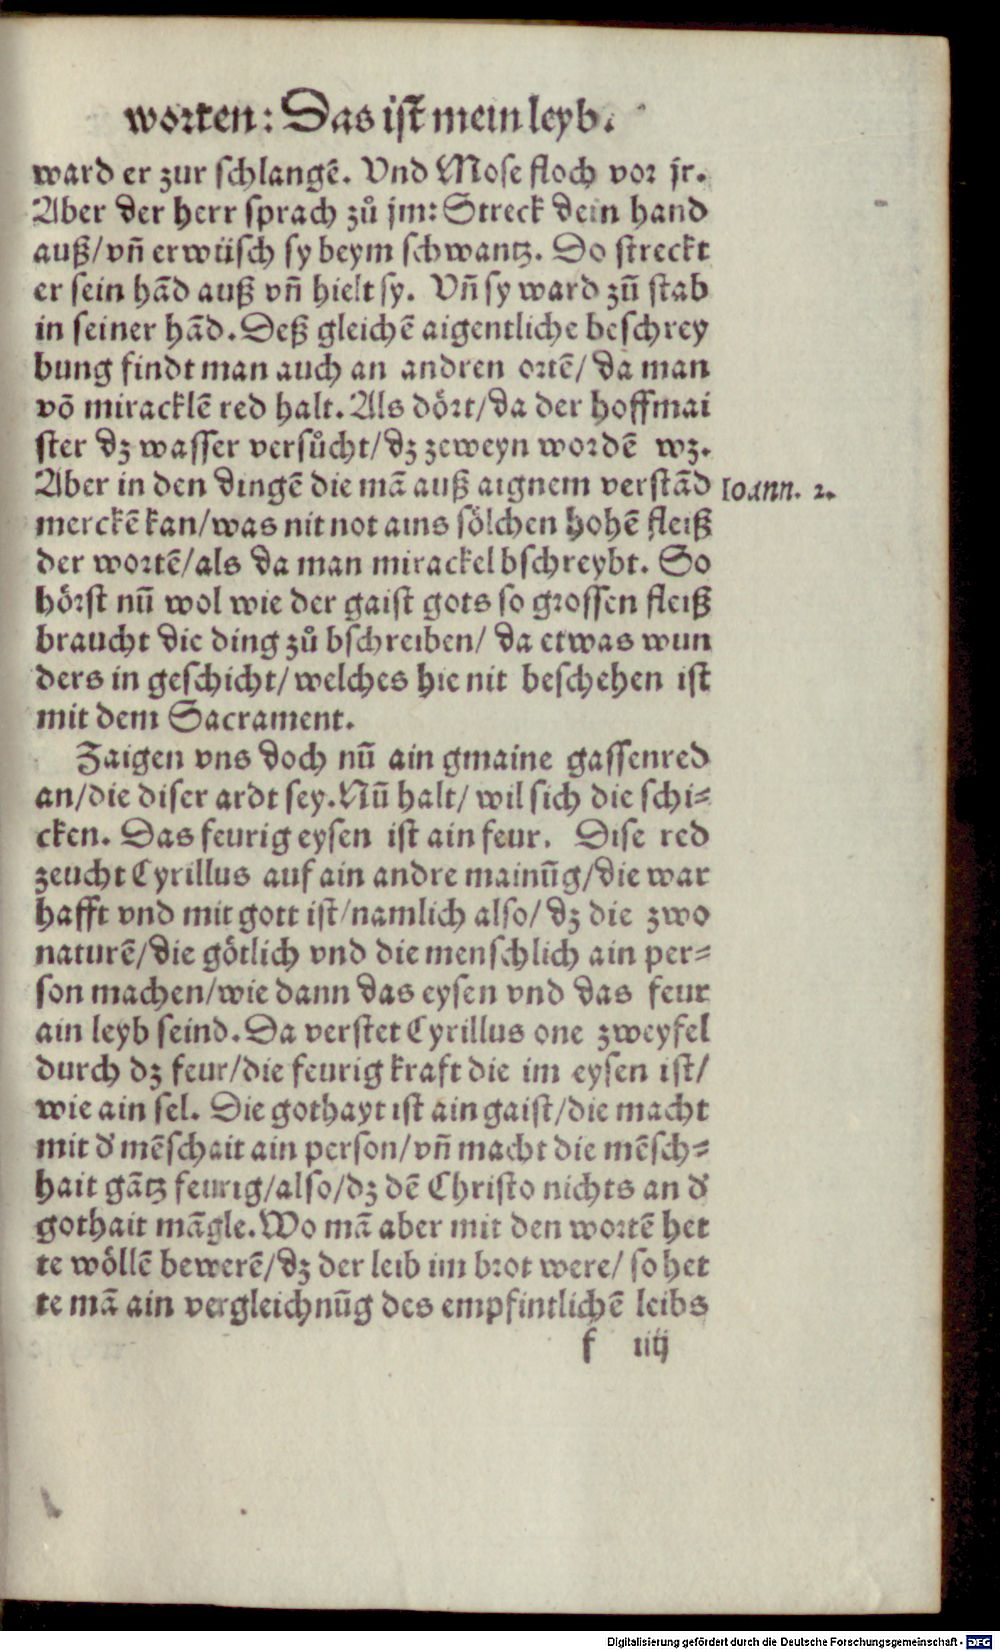 worten: Das ist mein leyb.
ward er zur schlangẽ. Vnd Mose floch vor jr.
Aber der herr sprach zů jm: Streck dein hand
auß/vñ erwüsch sy beym schwantz. Do streckt
er sein hãd auß vñ hielt sy. Vñ sy ward zũ stab
in seiner hãd. Deß gleichẽ aigentliche beschrey
bung findt man auch an andren ortẽ/ da man
võ miracklẽ red halt. Als dört/da der hoffmai
ster dz wasser versůcht/dz zeweyn wordẽ wz.
Aber in den dingẽ die mã auß aignem verstãd
Ioann. 2.
merckẽ kan/was nit not ains sölchen hohẽ fleiß
der wortẽ/als da man mirackel bschreybt. So
hörst nũ wol wie der gaist gots so grossen fleiß
braucht die ding zů bschreiben/ da etwas wun
ders in geschicht/welches hie nit beschehen ist
mit dem Sacrament.
Zaigen vns doch nũ ain gmaine gassenred
an/die diser ardt sey. Nũ halt/ wil sich die schi⸗
cken. Das feurig eysen ist ain feur. Dise red
zeucht Cyrillus auf ain andre mainũg/die war
hafft vnd mit gott ist/namlich also/ dz die zwo
naturẽ/die götlich vnd die menschlich ain per⸗
son machen/wie dann das eysen vnd das feur
ain leyb seind. Da verstet Cyrillus one zweyfel
durch dz feur/die feurig kraft die im eysen ist/
wie ain sel. Die gothayt ist ain gaist/die macht
mit d' mẽschait ain person/vñ macht die mẽsch⸗
hait gãtz feurig/also/dz dẽ Christo nichts an d'
gothait mãgle. Wo mã aber mit den wortẽ het
te wöllẽ bewerẽ/dz der leib im brot were/ so het
te mã ain vergleichnũg des empfintlichẽ leibs
f iiij
Digitalisierung gefördert durch die Deutsche Forschungsgemeinschaft - DFG